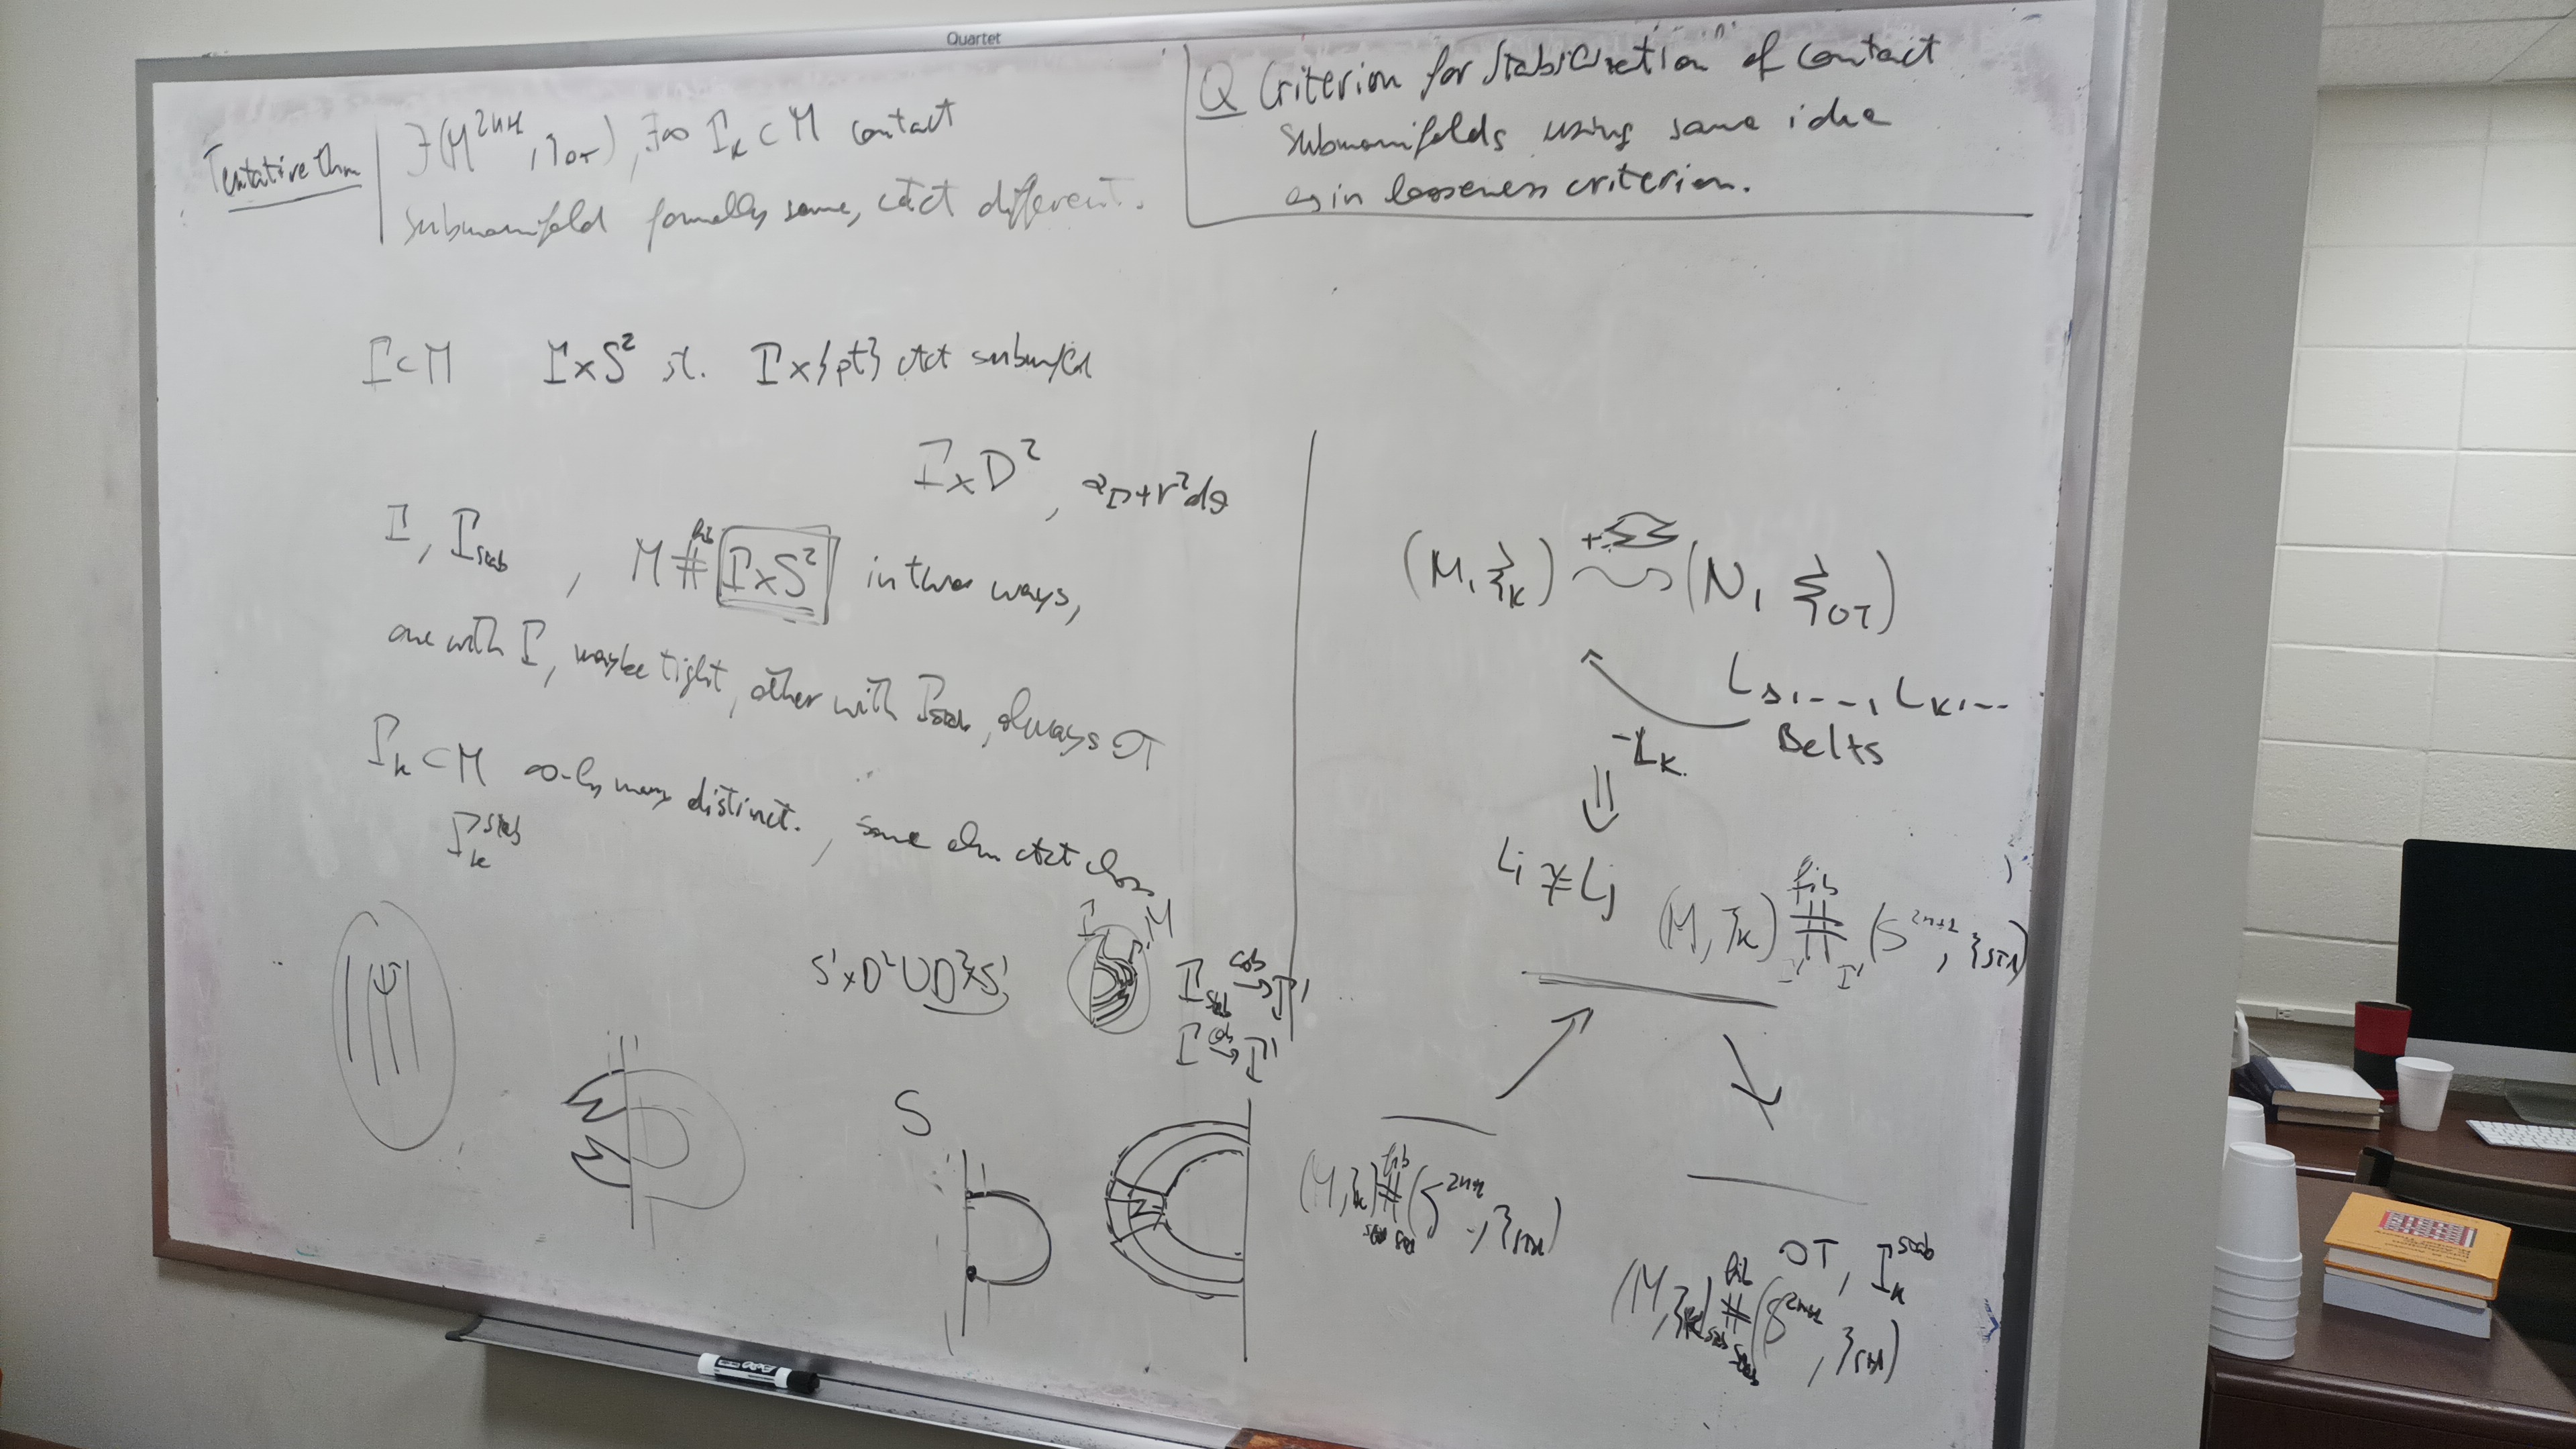 Quartet
Tentative thm ∃(M²ⁿ⁺¹, ξ_OT), ∃∞ Γ_k ⊂ M contact
submanifold formally same, ctct different.
Q Criterion for stabilization of contact
submanifolds using same idea
as in looseness criterion.
Γ⊂M Γ×S² st. Γ×{pt} ctct submfld
Γ×D², α_Γ+r²dθ
Γ, Γ_stab, M #^fib Γ×S² in two ways,
one with Γ, maybe tight, other with Γ_stab, always OT
Γ_k ⊂ M ∞-ly many distinct., same alm ctct class
Γ_k^stab
S¹×D²∪D²×S¹
Γ M
Γ_stab →^cob Γ'
Γ →^cob Γ'
S
(M, ξ_k) + ⇝ (N, ξ_OT)
L_1, ..., L_k, ...
Belts
-L_k.
⇓
L_i ≠ L_j
(M, ξ_k) #^fib (S²ⁿ⁺¹, ξ_std)
Γ' Γ'
(M, ξ_k) #^fib (S²ⁿ⁺¹, ξ_std)
OT, Γ_k^stab
(M, ξ_k) #^fib (S²ⁿ⁺¹, ξ_std)